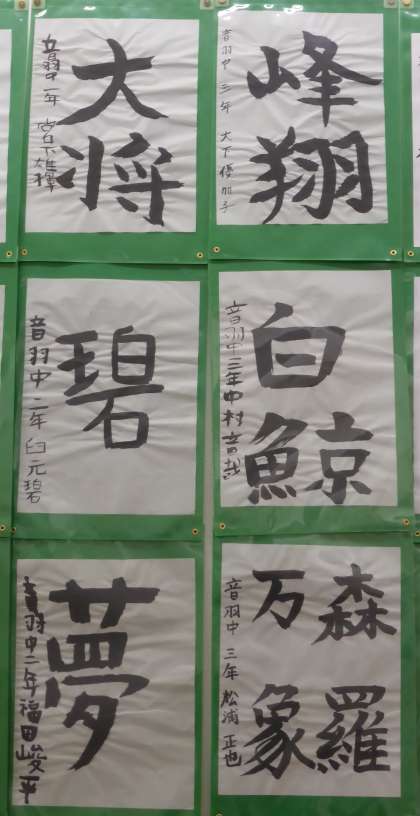 峰翔
音羽中 三年 大下優加子
大将
音羽中 一年
白鯨
音羽中三年中村
碧
音羽中 二年 臼元碧
森羅
万象
音羽中 三年 松浦正也
夢
音羽中二年福田峻平